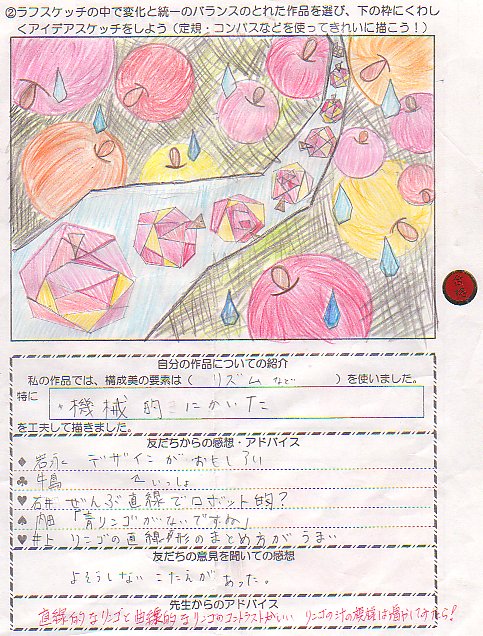 ②ラフスケッチの中で変化と統一のバランスのとれた作品を選び、下の枠にくわし
くアイデアスケッチをしよう（定規・コンパスなどを使ってきれいに描こう！）
自分の作品についての紹介
私の作品では、構成美の要素は（ リズム など ）を使いました。
特に ・機械的にかいた
を工夫して描きました。
友だちからの感想・アドバイス
◆ 岩永 デザインがおもしろい
♣ 牛島 〃 いっしょ
♥ 石井 ぜんぶ直線でロボット的？
♠ 内田 「青リンゴがないですね」
♥ 井上 リンゴの直線形のまとめ方がうまい
友だちの意見を聞いての感想
よそうしない こたえが あった。
先生からのアドバイス
直線的なリンゴと曲線的なリンゴのコントラストがいい リンゴの汁の模様は増やしてみたら！